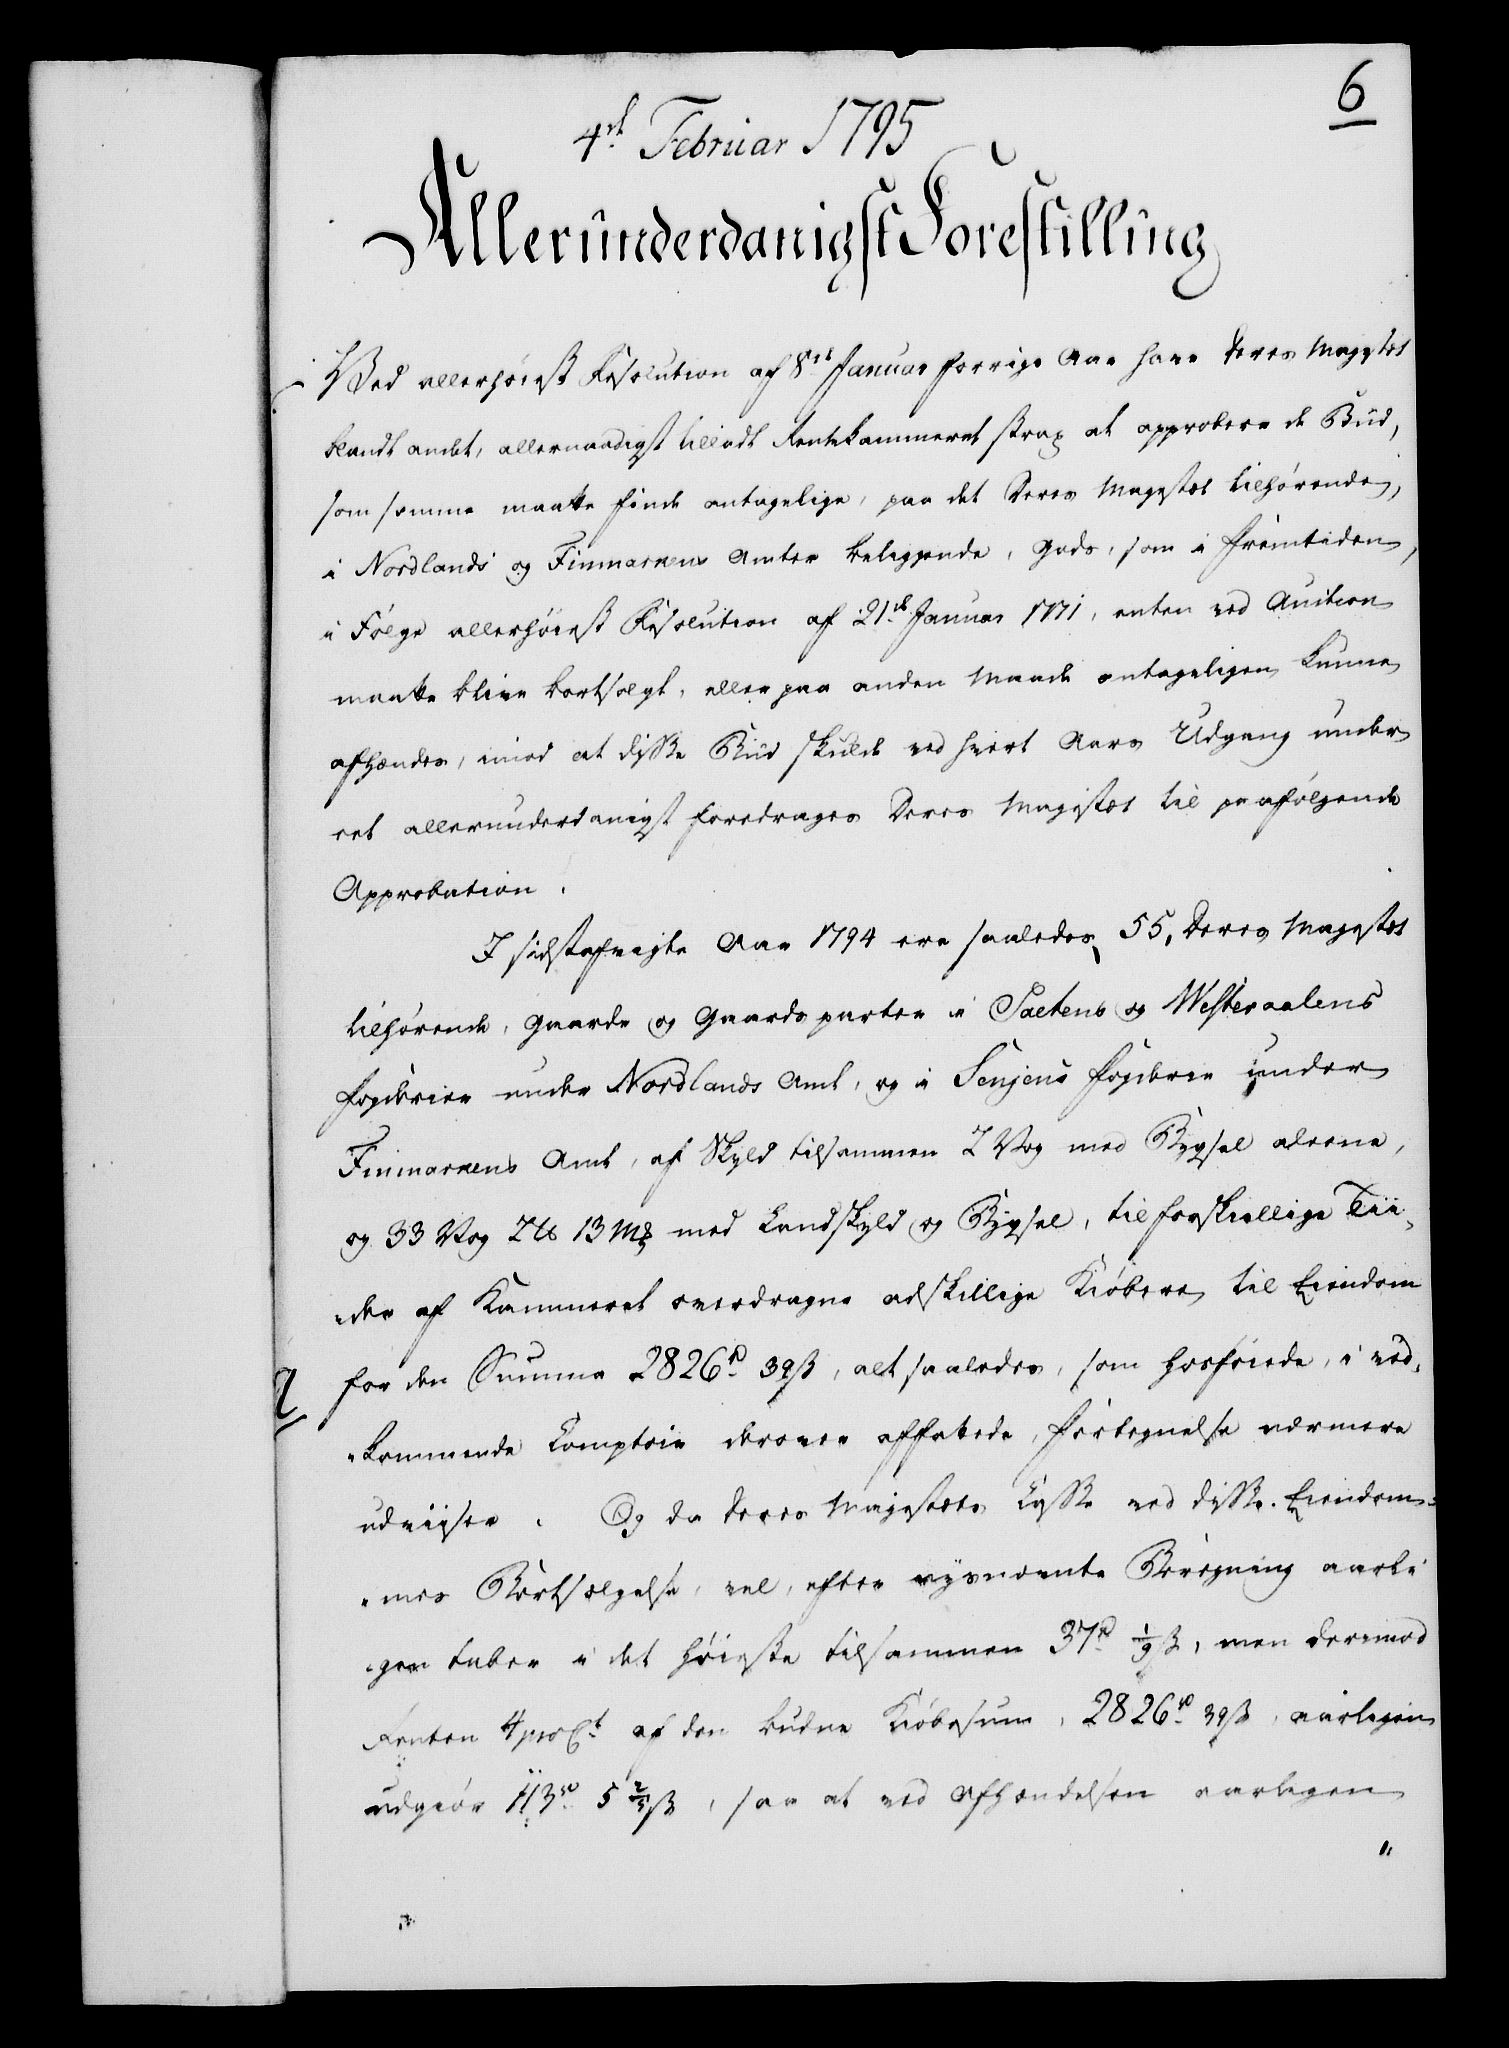 6
4de Februar 1795
Allerunderdanigst Forestilling
Ved allerhøieste Resolution af 8de Januar forrige Aar have Deres Majestet
blandt andet, allernaadigst tilladt Rentekammeret strax at approbere de Bud,
som samme maatte finde antagelige, paa det Deres Majestet tilhørende,
i Nordlands og Finmarkens Amter beliggende, Gods, som i Fremtiden,
i Følge allerhøieste Resolution af 21de Januar 1771, enten ved Auction
maatte blive bortsolgt, eller paa anden Maade antageligen kunne
afhændes, imod at disse Bud skulde ved hvert Aars Udgang under
eet allerunderdanigst foredrages Deres Majestet til paafølgende
Approbation.
I sidstafvigte Aar 1794 ere saaledes 55, Deres Majestet
tilhørende, Gaarde og Gaardsparter i Saltens og Westeraalens
Fogderier under Nordlands Amt, og i Senjens Fogderie under
Finmarkens Amt, af Skyld tilsammen 2 Vog med Bygsel alene,
og 33 Vog 2 ℔ 13 Mk med Landskyld og Bygsel, til forskiellige Tii-
der af Kammeret overdragne adskillige Kiøbere til Eiendom
for den Summa 2826 rd 39 ß, alt saaledes, som hosføiede, i ved-
kommende Comptoir derover affattede, Fortegnelse nærmere
udviiser. Og da Deres Majestets Casse ved disse Eiendom-
mes Bortsælgelse, vel, efter nysnævnte Beregning aarli
gen taber i det høieste tilsammen 37 rd 1/9 ß, men derimod
Renten 4 pro Ct af den budne Kiøbesum, 2826 rd 39 ß, aarligen
udgiør 113 rd 5 2/5 ß, saa at ved Afhændelsen aarligen